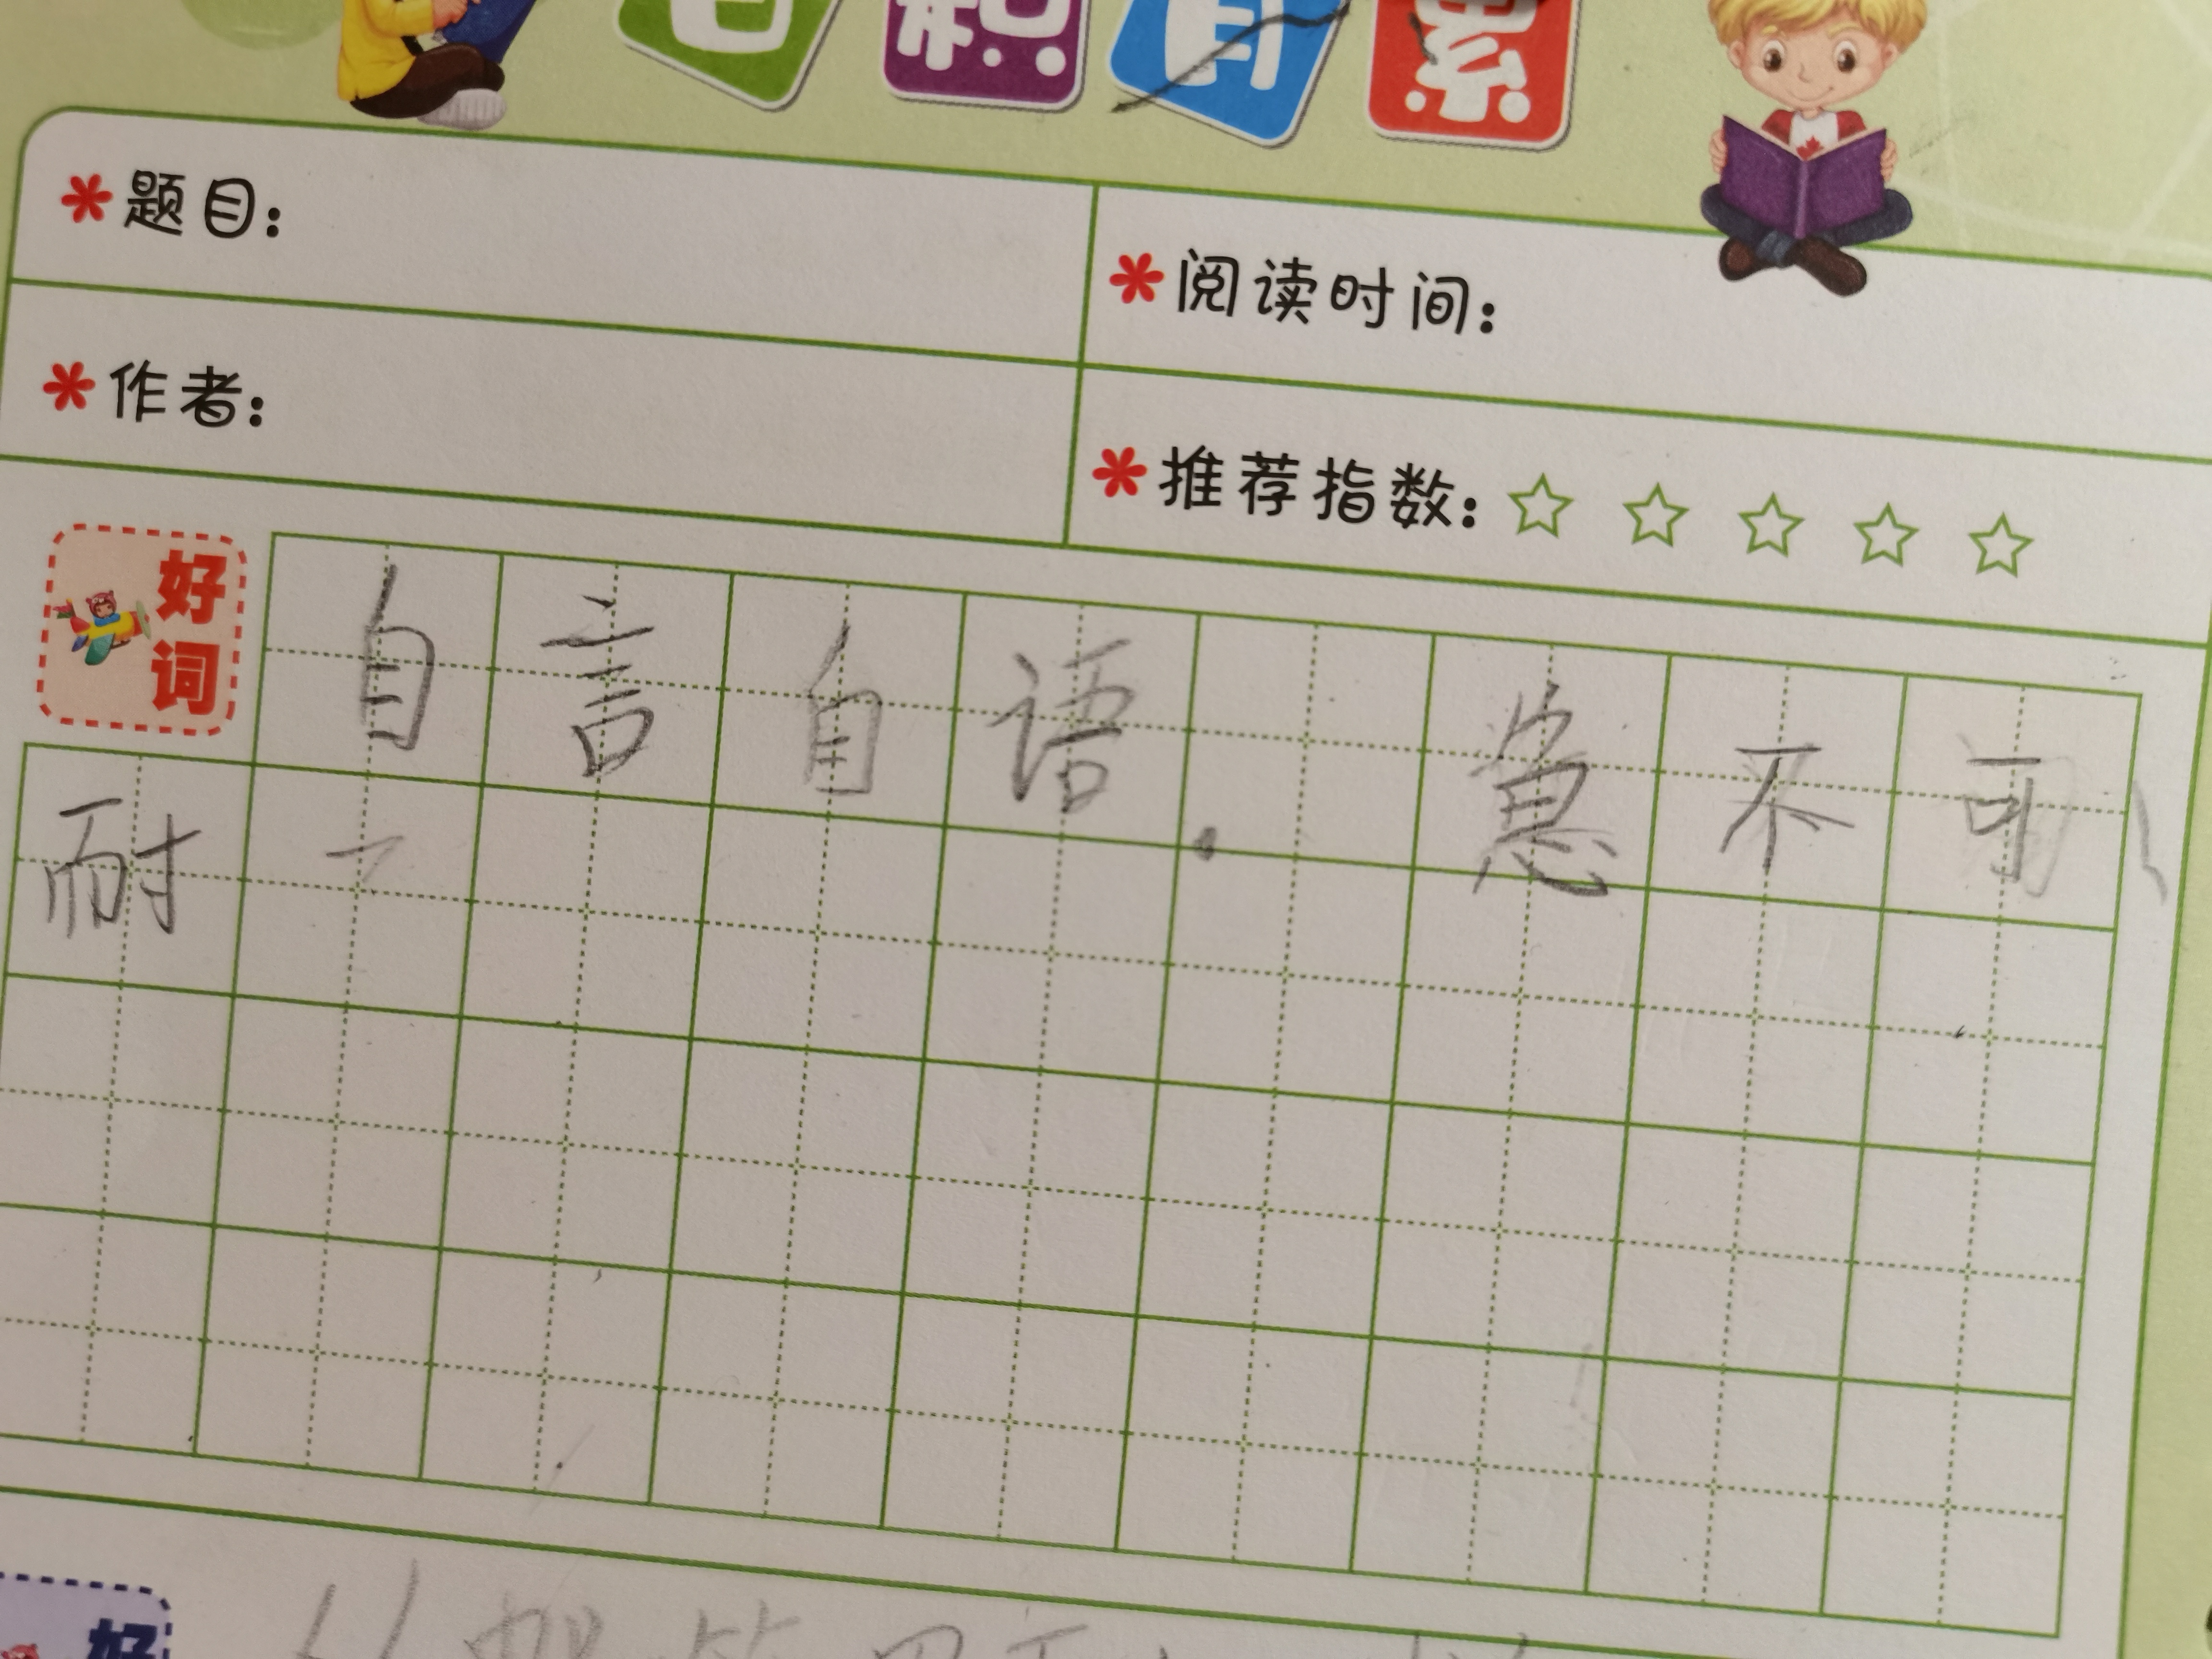 积有累
题目：
阅读时间：
作者：
推荐指数：
好词
自言自语. 急不可
耐
好